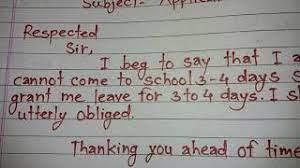 Subject:- Applica
Respected
Sir,
I beg to say that I a
cannot come to school 3-4 days s
grant me leave for 3 to 4 days. I s
utterly obliged.
Thanking you ahead of time